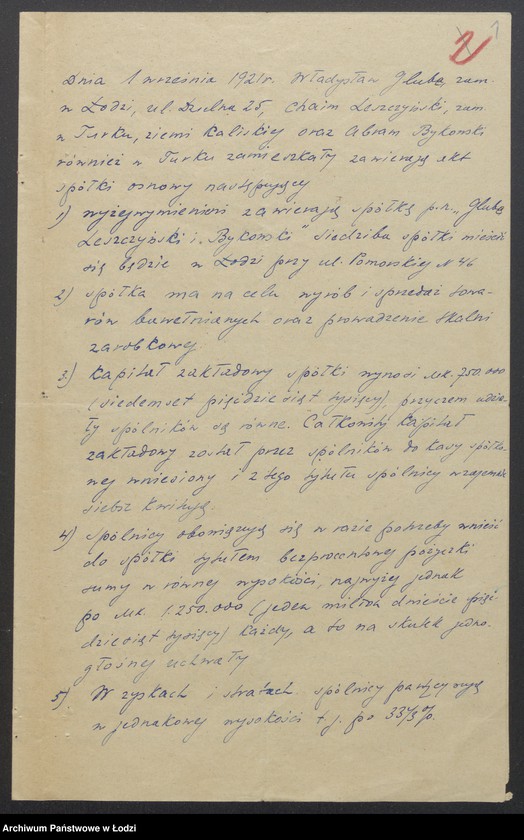 2 1
Dnia 1 września 1921r. Władysław Gluba, zam.
w Łodzi, ul. Dzielna 25, Chaim Leszczyński, zam.
w Turku, ziemi Kaliskiej oraz Abram Bykowski
również w Turku zamieszkały zawierają akt
spółki osnowy następującej
1) wyżejwymienieni zawierają spółkę p.n. „Gluba
Leszczyński i Bykowski" siedziba spółki mieścić
się będzie w Łodzi przy ul. Pomorskiej N 46
2) spółka ma na celu wyrób i sprzedaż towa-
rów bawełnianych oraz prowadzenie tkalni
zarobkowej.
3) Kapitał zakładowy spółki wynosi Mk. 750.000
(siedemset pięćdziesiąt tysięcy), przyczem udzia-
ły spólników są równe. Całkowity kapitał
zakładowy został przez spólników do kasy spółko-
wej wniesiony i z tego tytułu spólnicy wzajemnie
siebie kwitują.
4) spólnicy obowiązują się w razie potrzeby wnieść
do spółki tytułem bezprocentowej pożyczki
sumy w równej wysokości, najwyżej jednak
po Mk. 1.250.000 (jeden miljon dwieście pięć-
dziesiąt tysięcy) każdy, a to na skutek jedno-
głośnej uchwały
5) W zyskach i stratach spólnicy partycypują
w jednakowej wysokości t.j. po 33⅓%.
Archiwum Państwowe w Łodzi